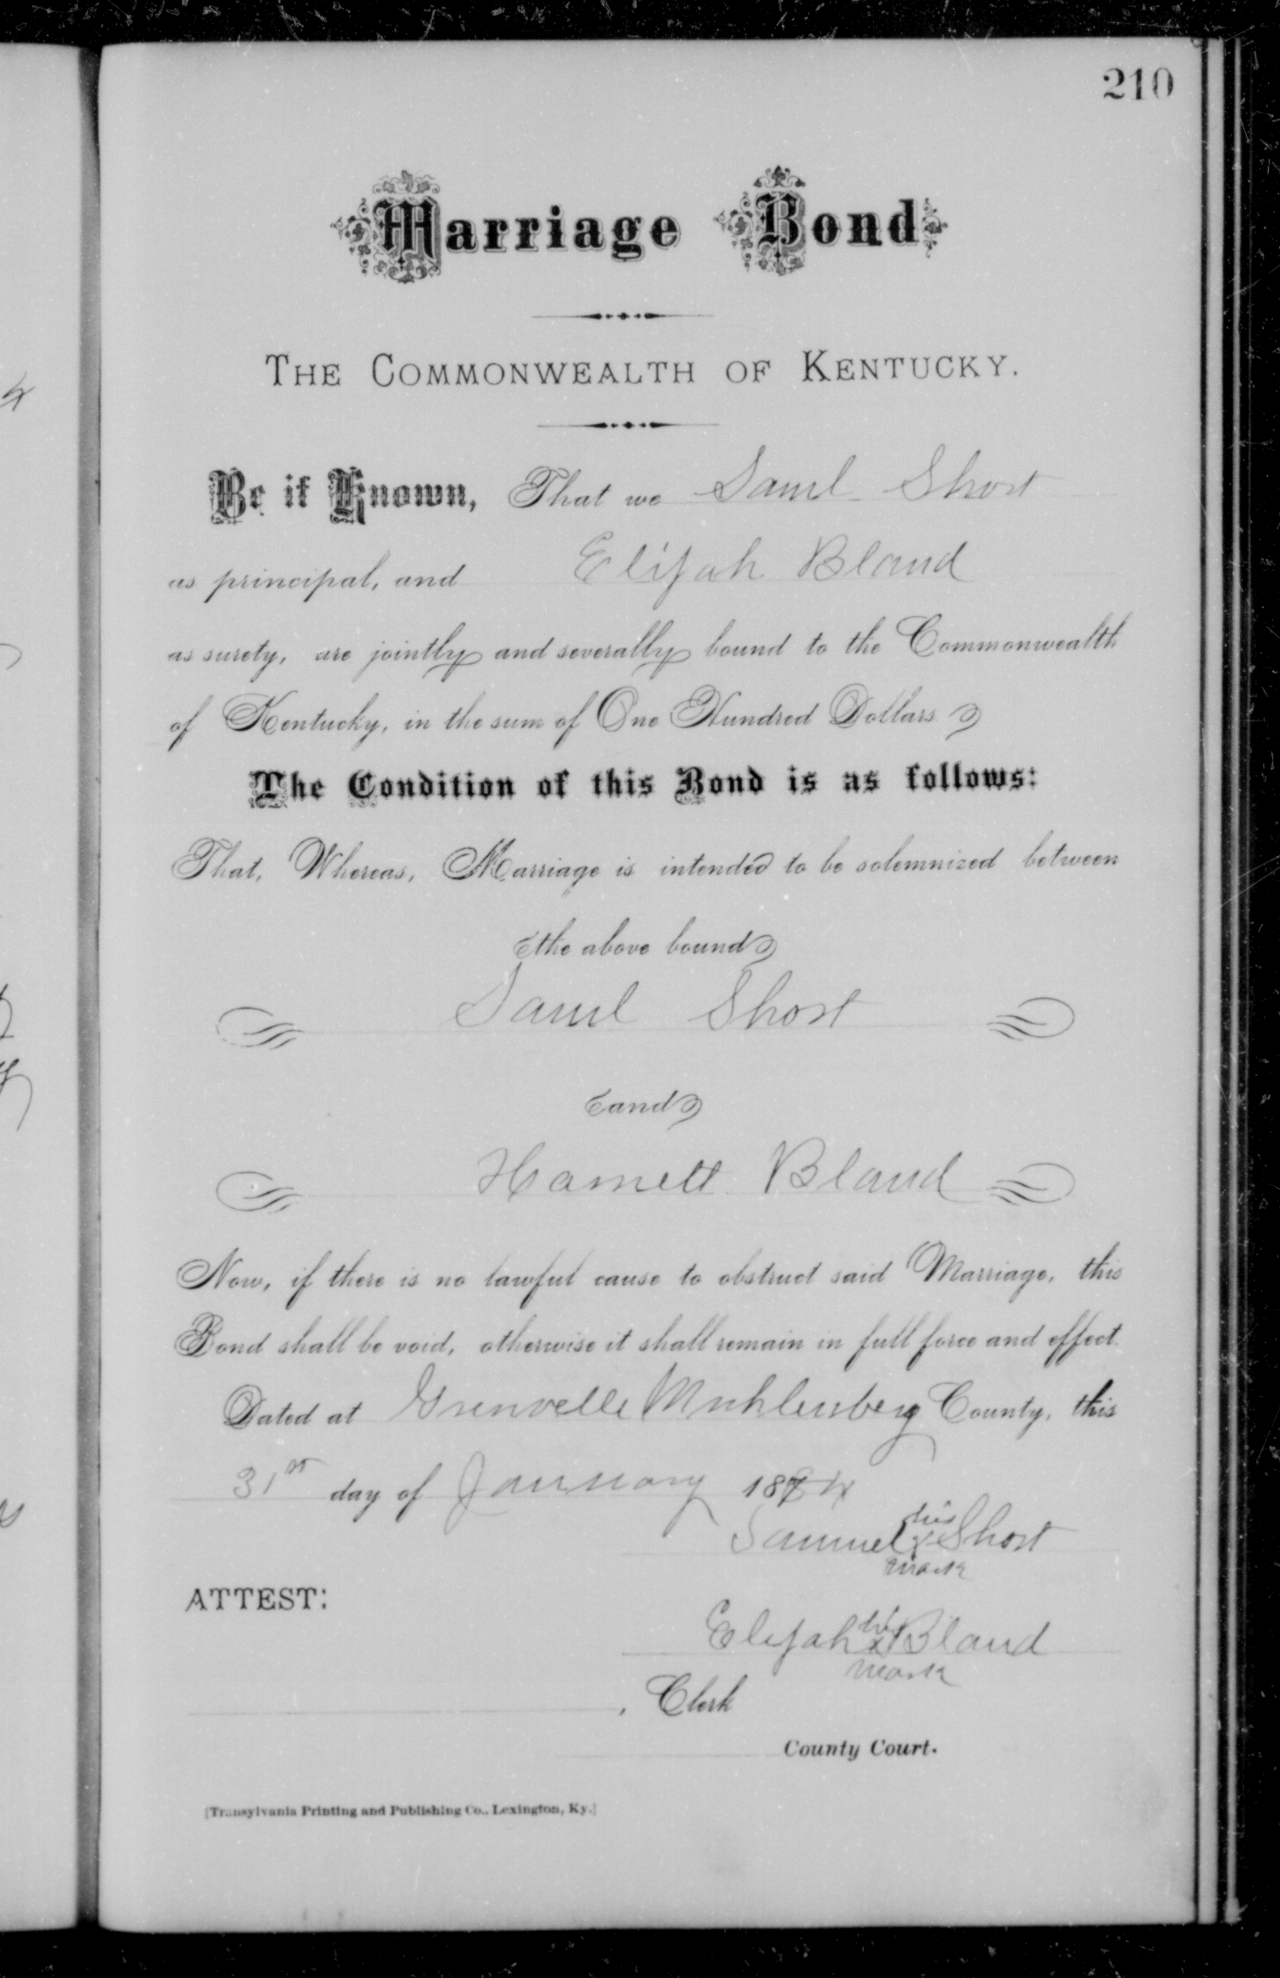 210
Marriage Bond
THE COMMONWEALTH OF KENTUCKY.
Be it Known, That we Saml Short
as principal, and Elijah Bland
as surety, are jointly and severally bound to the Commonwealth
of Kentucky, in the sum of One Hundred Dollars.
The Condition of this Bond is as follows:
That, Whereas, Marriage is intended to be solemnized between
the above bound
Saml Short
and
Bland
Now, if there is no lawful cause to obstruct said Marriage, this
Bond shall be void, otherwise it shall remain in full force and effect.
Dated at Grenvelle Muhlenberg County, this
31st day of January 1884
his
Samuel x Short
mark
ATTEST:
his
Elijah x Bland
mark
, Clerk
County Court.
[Transylvania Printing and Publishing Co., Lexington, Ky.]